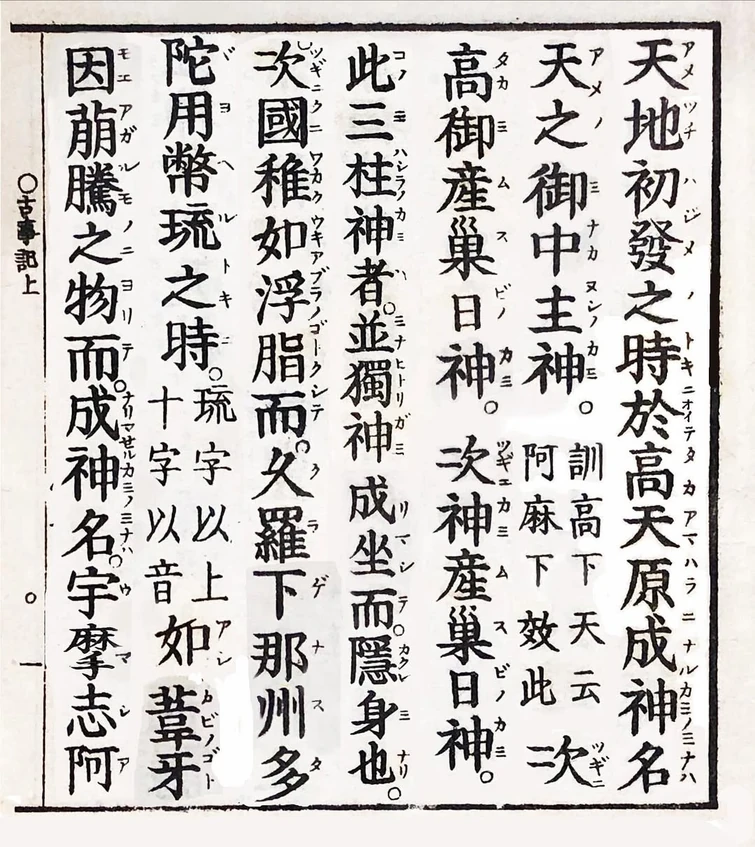 天地初發之時於高天原成神名
天之御中主神。訓高下天云阿麻下效此次
高御産巢日神。次神産巢日神。
此三柱神者。並獨神成坐而。隱身也。
次國稚如浮脂而。久羅下那州多
陀用幣琉之時。琉字以上十字以音如葦牙
因萠騰之物而。成神名。宇摩志阿
○古事記上
○一